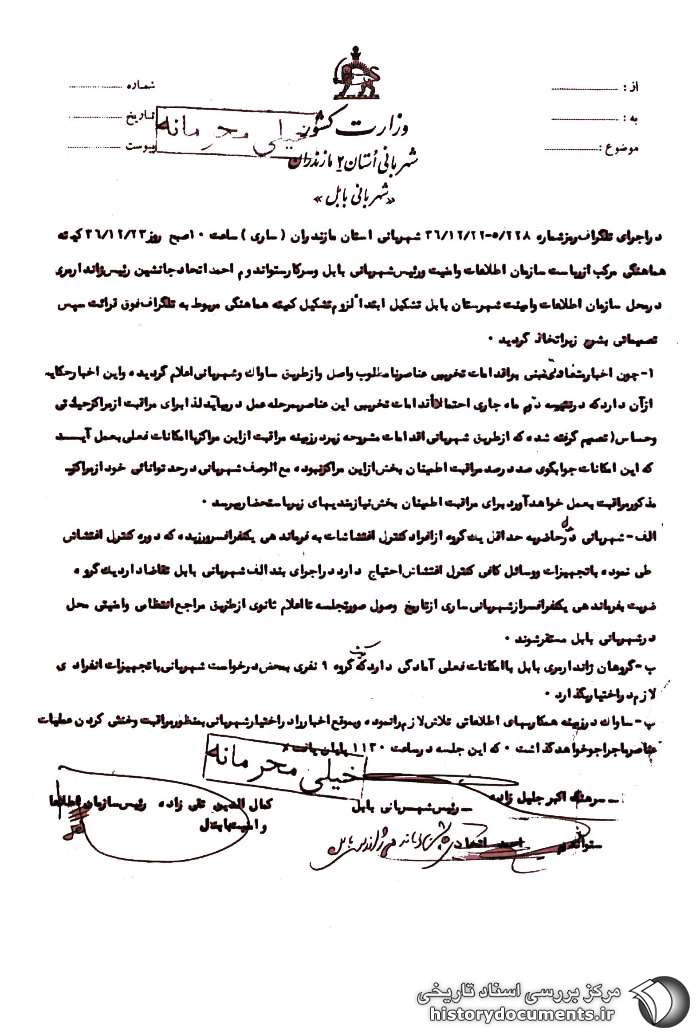 از :
به :
موضوع :
شماره
تاریخ
پیوست
وزارت کشور
خیلی محرمانه
شهربانی استان ۲ مازندران
«شهربانی بابل»
در اجرای تلگراف رمز شماره ۵/۲۲۸-۳۶/۱۲/۲۲ شهربانی استان مازندران (ساری) ساعت ۱۰ صبح روز ۳۶/۱۲/۲۳ کمیته
هماهنگی مرکب از ریاست سازمان اطلاعات وامنیت ورئیس شهربانی بابل وسرکارستواندوم احمد اتحاد جانشین رئیس ژاندارمری
درمحل سازمان اطلاعات وامنیت شهرستان بابل تشکیل ابتدا لزوم تشکیل کمیته هماهنگی مربوط به تلگراف فوق قرائت سپس
تصمیماتی بشرح زیر اتخاذ گردید ۰
۱- چون اخبار متعددی مبنی براقدامات تخریبی عناصر نامطلوب واصل وازطریق ساواک وشهربانی اعلام گردیده واین اخبار حکایه
ازآن دارد که درنیمه دوم ماه جاری احتمالا اقدامات تخریبی این عناصر بمرحله عمل درمیاید لذا برای مراقبت ازمراکز حیاتی
وحساس( تصمیم گرفته شد که ازطریق شهربانی اقدامات مشروحه زیر درزمینه مراقبت ازاین مراکز باامکانات فعلی بعمل آید
که این امکانات جوابگوی صد درصد مراقبت اطمینان بخش ازاین مراکز نبوده مع الوصف شهربانی درحد توانائی خود ازمراکز
مذکور مراقبت بعمل خواهد آورد برای مراقبت اطمینان بخش نیازمندیهای زیر باستحضار میرسد ۰
الف- شهربانی درحال حاضر به حداقل یک گروه ازافراد کنترل اغتشاشات به فرماندهی یکنفر افسر ورزیده که دوره کنترل اغتشاش
طی نموده باتجهیزات ووسائل کافی کنترل اغتشاش احتیاج دارد دراجرای بند الف شهربانی بابل تقاضا دارد یک گروه
ضربت بفرماندهی یکنفر افسر ازشهربانی ساری ازتاریخ وصول صورتجلسه تا اعلام ثانوی ازطریق مراجع انتظامی وامنیتی محل
درشهربانی بابل مستقر شوند ۰
ب- گروهان ژاندارمری بابل باامکانات فعلی آمادگی دارد که گروه ۹ نفری بمحض درخواست شهربانی باتجهیزات انفرادی
لازم دراختیار بگذارد ۰
پ- ساواک درزمینه همکاریهای اطلاعاتی تلاش لازم رانموده وبموقع اخبار رادراختیار شهربانی بمنظور مراقبت وخنثی کردن عملیات
عناصر ماجراجو خواهد گذاشت ۰ که این جلسه درساعت ۱۱۳۰ پایان یافت ۰
خیلی محرمانه
سرهنگ اکبر جلیل زاده
ـ رئیس شهربانی بابل
کمال الدین تقی زاده رئیس سازمان اطلاعات
و امنیت بابل
ستواندوم احمد اتحادی
مرکز بررسی اسناد تاریخی
historydocuments.ir